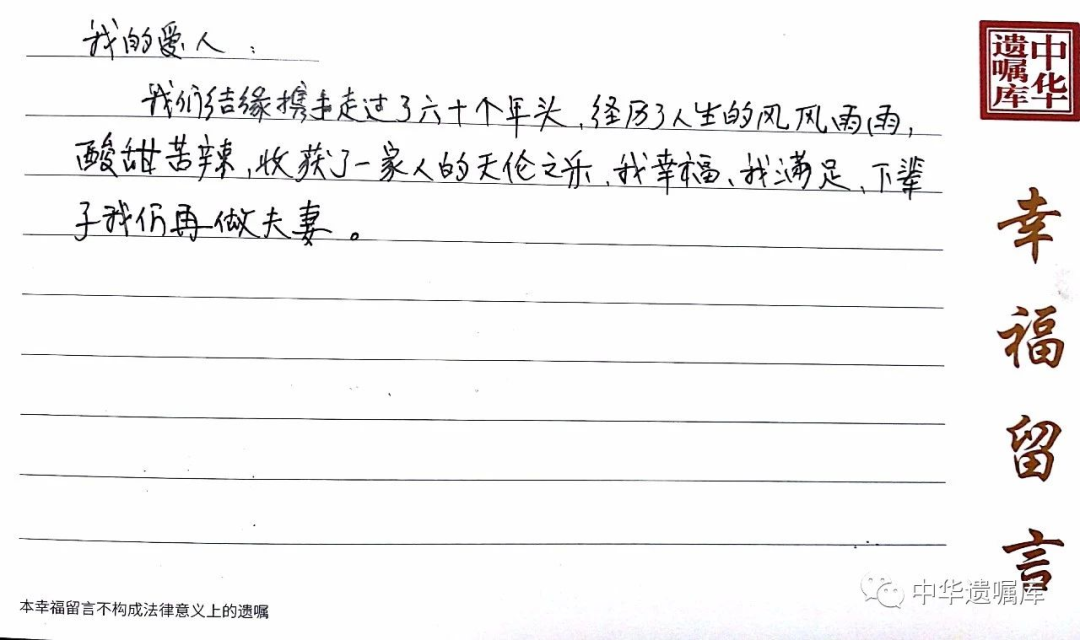 我的爱人：
我们结缘携手走过了六十个年头，经历了人生的风风雨雨，
酸甜苦辣，收获了一家人的天伦之乐，我幸福、我满足、下辈
子我们再做夫妻。
中华遗嘱库
幸福留言
本幸福留言不构成法律意义上的遗嘱
中华遗嘱库